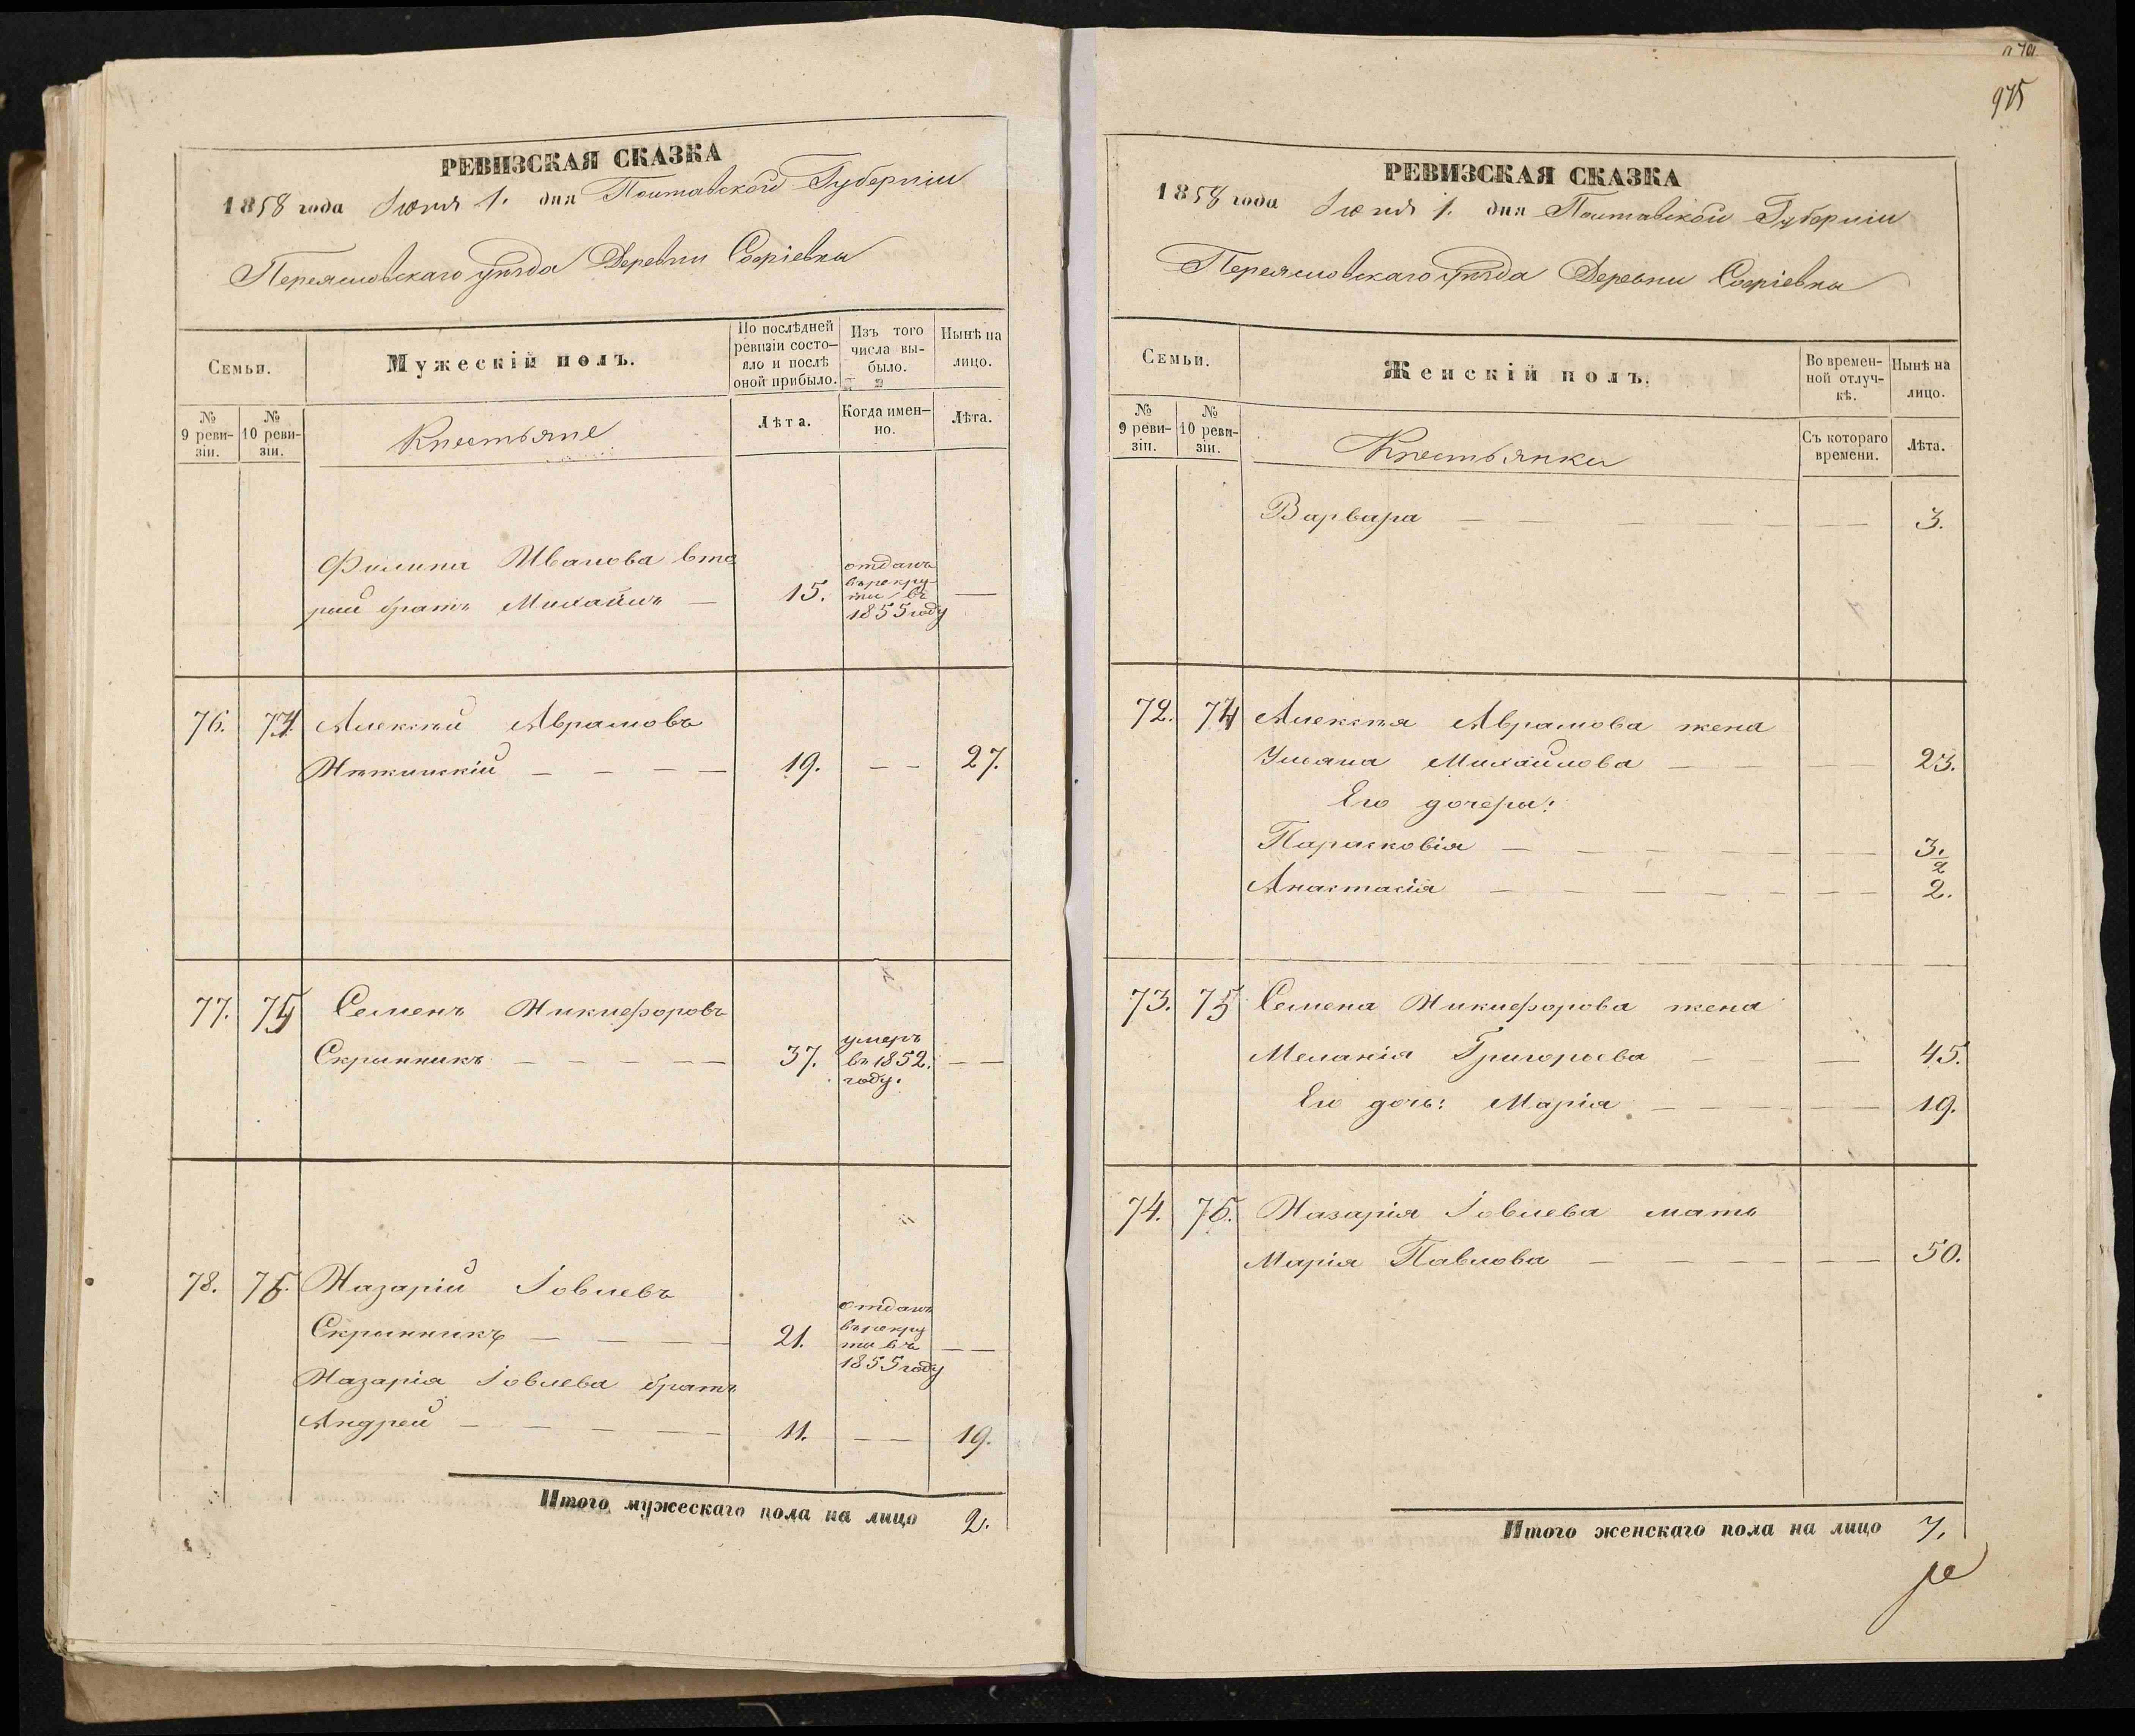 975
РЕВИЗСКАЯ СКАЗКА
1858 года Іюня 1. дня Полтавской Губерніи
Переяславскаго уѣзда Деревни Софіевки
Семьи.
Мужескій полъ.
По послѣдней ревизіи состояло и послѣ оной прибыло.
Изъ того числа выбыло.
Нынѣ на лицо.
№ 9 ревизіи.
№ 10 ревизіи.
Крестьяне
Лѣта.
Когда именно.
Лѣта.
Филипа Иванова вто
рий братъ Михайлъ — 15. отданъ въ рекруты въ 1855 году —
76. 74. Алексѣй Аврамовъ
Нѣжинскій — — — — 19. — — 27.
77. 75 Семенъ Никифоровъ
Скринникъ — — — — — 37. умеръ въ 1852. году. — —
78. 76. Назарій Іовлевъ
Скринникъ — — — — 21. отданъ въ рекруты въ 1855 году — —
Назарія Іовлева братъ
Андрей — — — — — 11. — — 19.
Итого мужескаго пола на лицо 2.
РЕВИЗСКАЯ СКАЗКА
1858 года Іюня 1. дня Полтавской Губерніи
Переяславскаго уѣзда Деревни Софіевки
Семьи.
Женскій полъ.
Во временной отлучкѣ.
Нынѣ на лицо.
№ 9 ревизіи.
№ 10 ревизіи.
Крестьянки
Съ котораго времени.
Лѣта.
Варвара — — — — — — 3.
72. 74 Алексѣя Аврамова жена
Ульяна Михайлова — — — — 23.
Его дочери:
Парасковія — — — — — — 3. 1/2
Анастасія — — — — — — — 2.
73. 75 Семена Никифорова жена
Меланія Григорьева — — 45.
Его дочь: Марія — — — — — 19.
74. 76. Назарія Іовлева мать
Марія Павлова — — — — — — 50.
Итого женскаго пола на лицо 7.